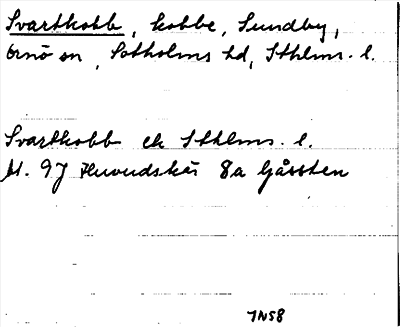 Svartkobb, kobbe, Sundby,
Ornö sn, Sotholms hd, Sthlms. l.
Svartkobb ek Sthlms. l.
bl. 9J Huvudskär 8a Gåssten
JN58